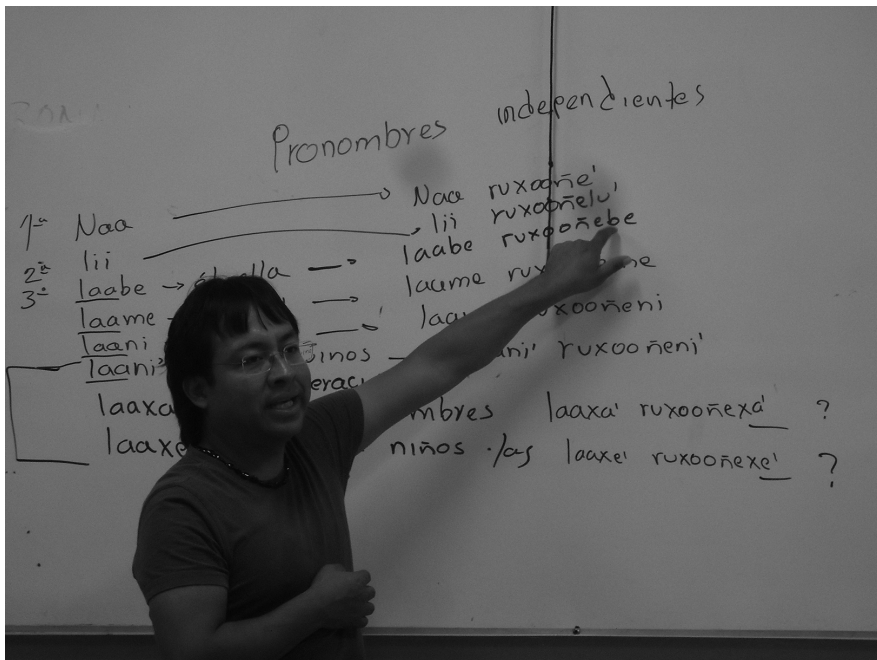 Pronombres independientes
1ª Naa → Naa ruxooñe'
2ª lii → lii ruxooñelu'
3ª laabe → laabe ruxooñebe
laame → laame
laani ruxooñeni
laani' ruxooñeni'
laaxa laaxa' ruxooñexa' ?
laaxe niños /as laaxe' ruxooñexe' ?